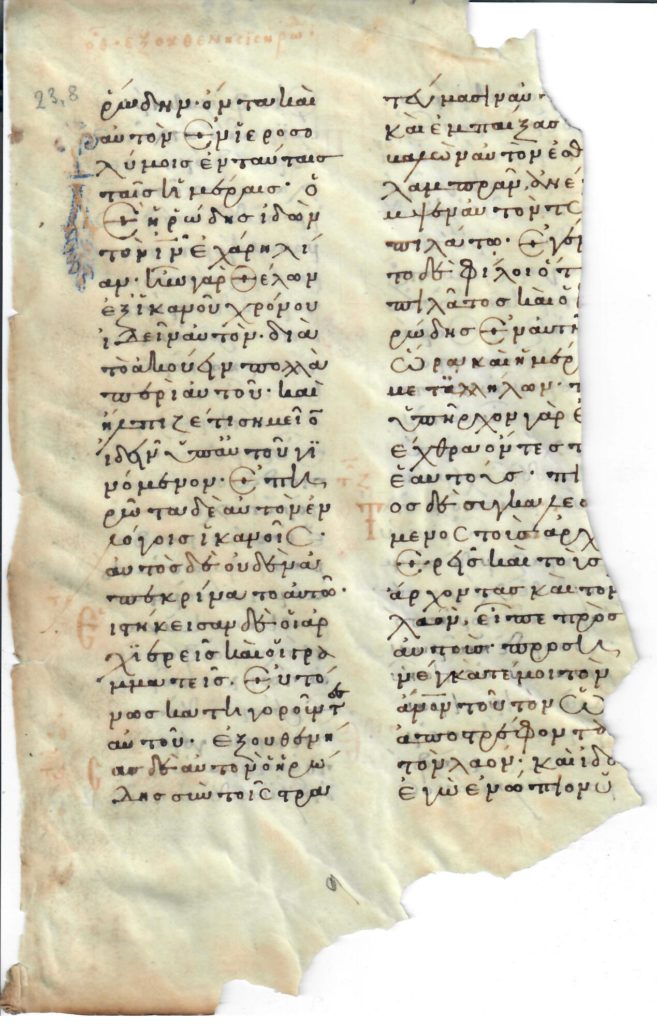 23,8
ρώδην· ὄντα καὶ
αὐτὸν ἐν ἱεροσο
λύμοις ἐν ταύταις
ταῖς ἡμέραις· ὁ
ἡρώδης ἰδὼν
τὸν ιν ἐχάρη λί
αν· ἦν γὰρ θέλων
ἐξ ἱκανοῦ χρόνου
ἰδεῖν αὐτὸν· διὰ
τὸ ἀκούειν πολλὰ
περὶ αὐτοῦ· καὶ
ἤλπιζέ τι σημεῖο
ἰδεῖν ὑπ' αὐτοῦ γι
νόμενον· ἐπη
ρώτα δὲ αὐτὸν ἐν
λόγοις ἱκανοῖς·
αὐτὸς δὲ οὐδὲν ἀ
πεκρίνατο αὐτῶ·
ιτήκεισαν δὲ οἱ ἀρ
χιερεῖς καὶ οἱ γρα
μματεῖς. εὐτό
νως κατηγοροῦντες
αὐτοῦ· ἐξουθενή
σας δὲ αὐτὸν ὁ ἡρώ
δης σὺν τοῖς στρα
τεύμασιν αὐτ
καὶ ἐμπαίξας
βαλὼν αὐτὸν ἐσθ
λαμπρὰν, ἀνέ
μψεν αὐτὸν τ
πιλάτω· ἐγέν
το δὲ φίλοι ὅ τ
πιλᾶτος καὶ ὁ
ρώδης ἐν αὐτῆ
ὥρα καὶ ἡμέρ
μετ' ἀλλήλων·
ὑπῆρχον γὰρ ἐ
ἔχθρα ὄντες π
ἑαυτούς· πι
ος δὲ συγκαλεσ
μενος τοὺς ἀρχ
ερεῖς καὶ τοὺς
ἄρχοντας καὶ τὸν
λαὸν, εἶπε πρὸς
αὐτούς· προση
νέγκατέ μοι τὸν
ανον τοῦτον ὡ
ἀποστρέφοντα
τὸν λαόν· καὶ ἰδο
ἐγὼ ἐνώπιον ὑ